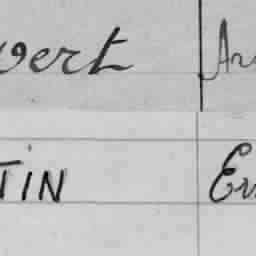 vert Ar
TIN Er